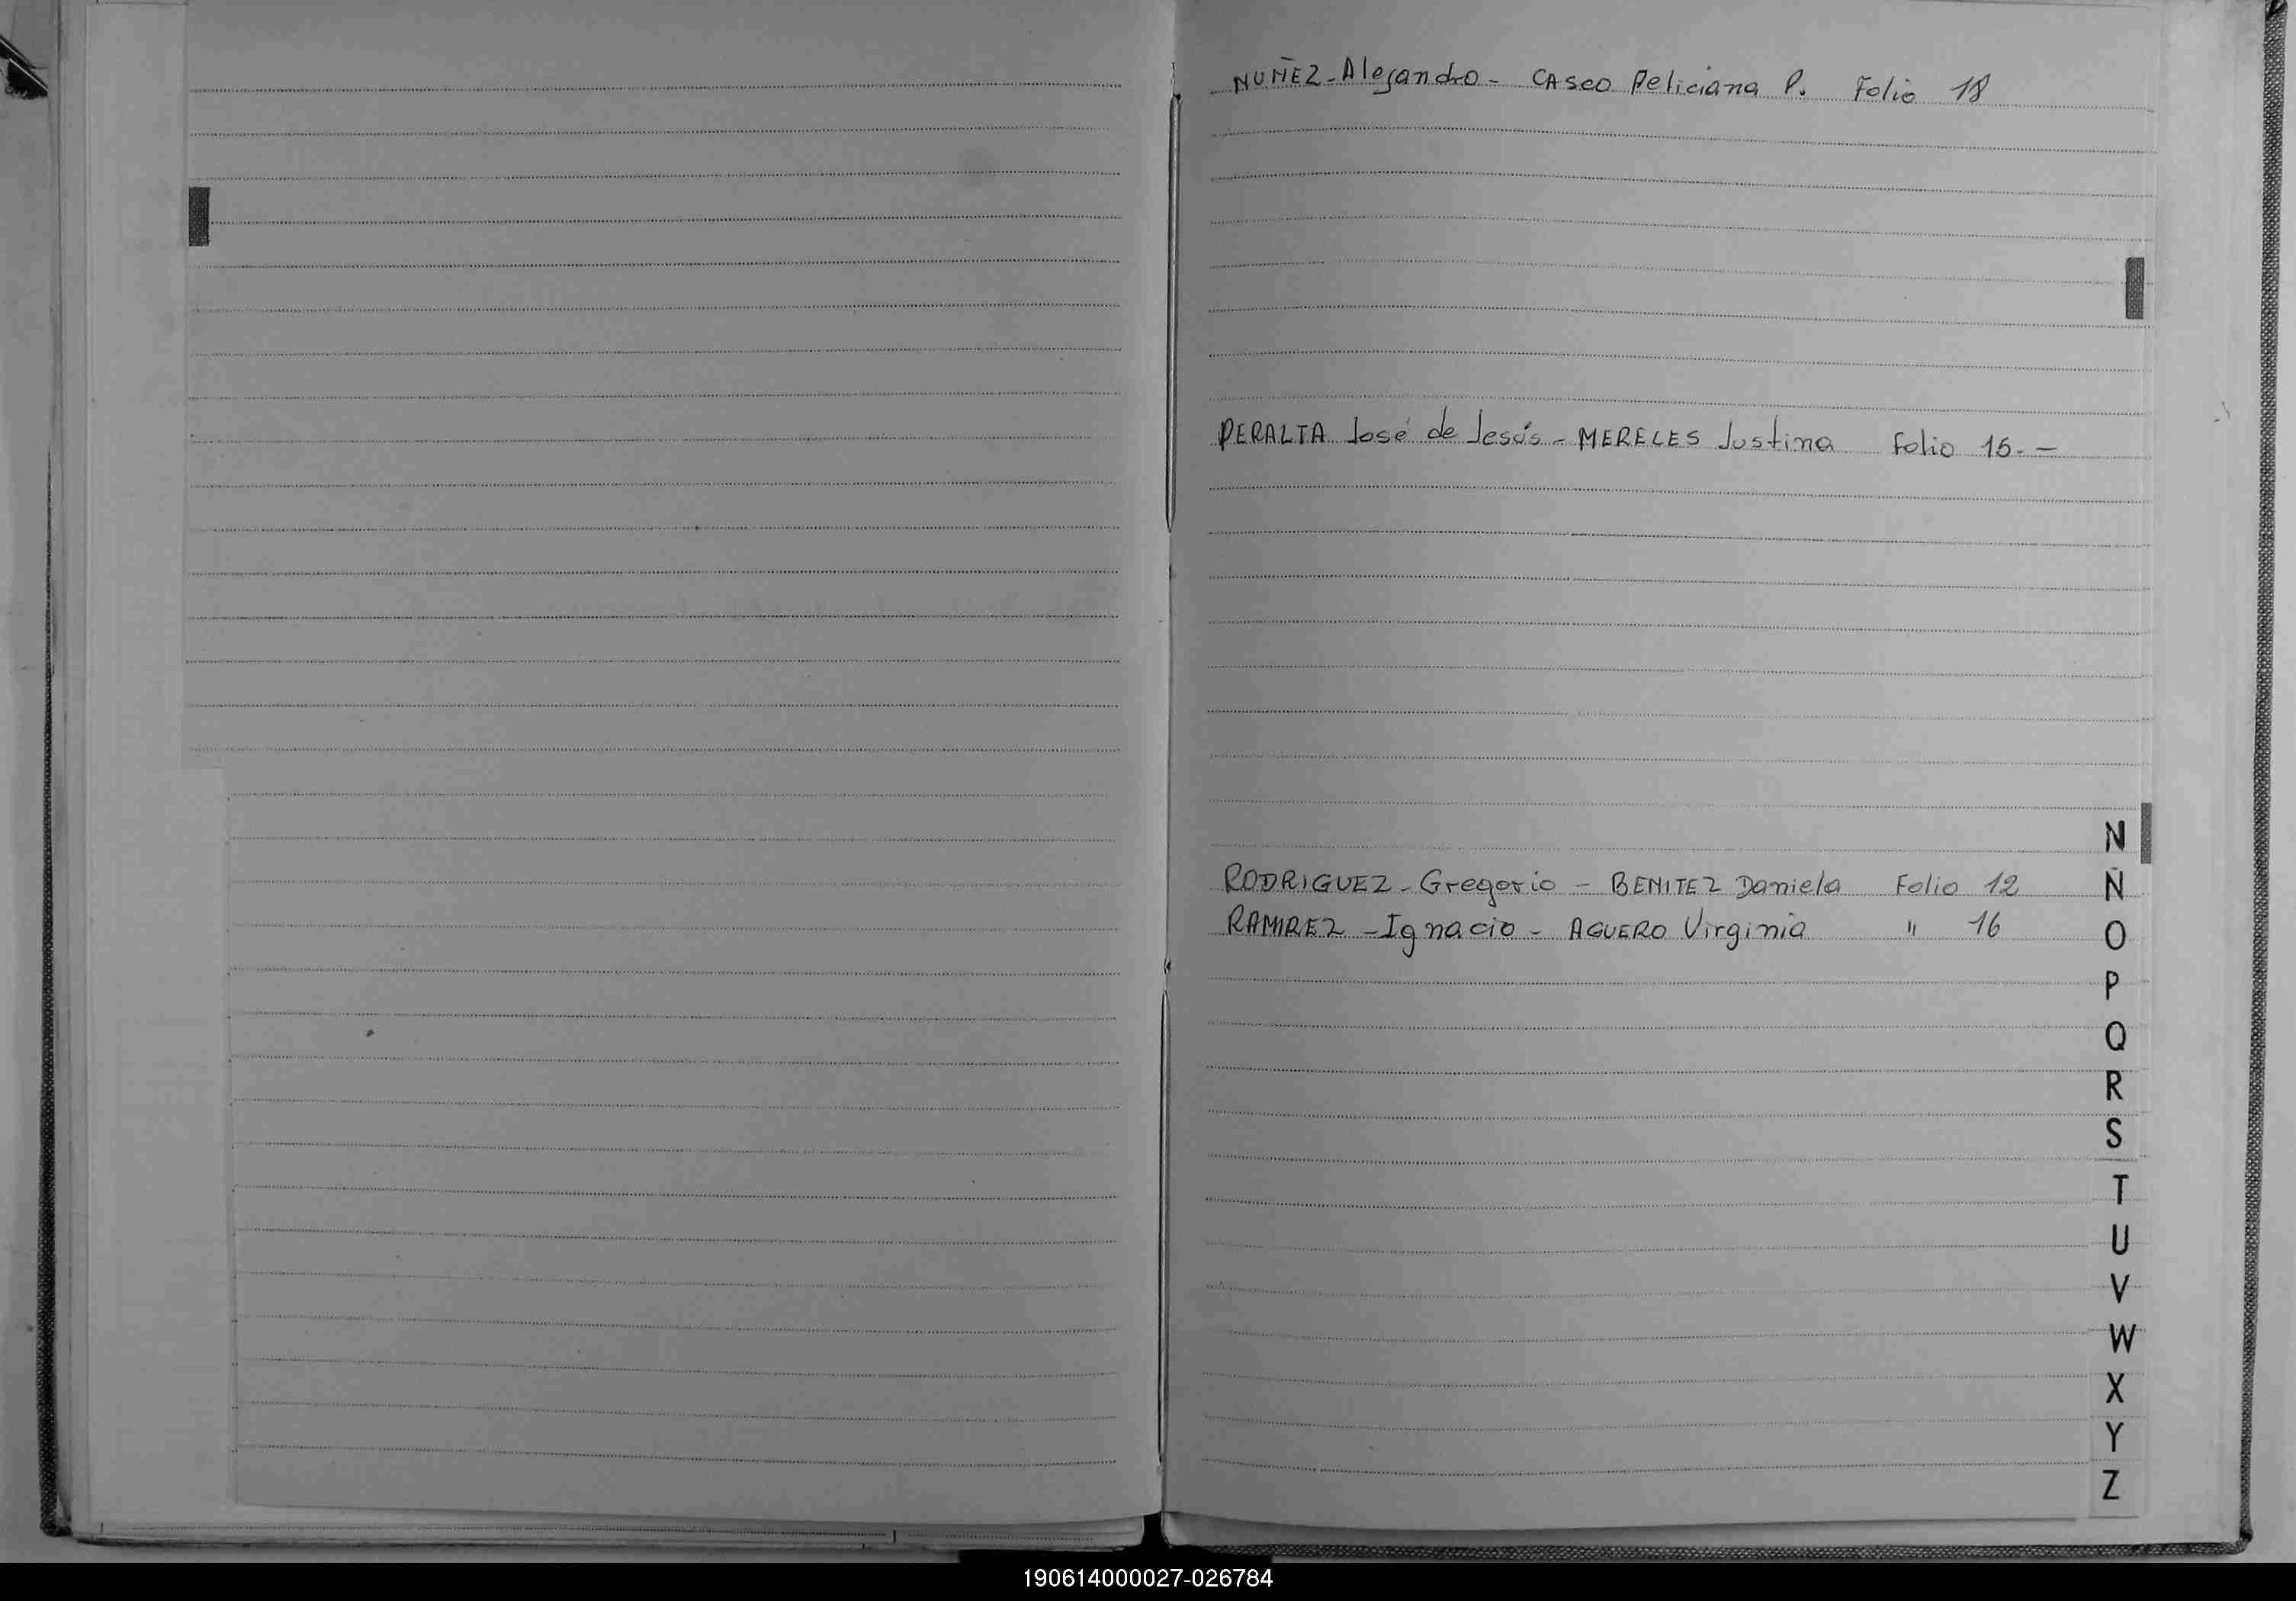 NUÑEZ - Alejandro - CASCO Feliciana P. Folio 18
PERALTA José de Jesús - MERELES Justina Folio 15. -
RODRIGUEZ - Gregorio - BENITEZ Daniela Folio 12
RAMIREZ - Ignacio - AGUERO Virginia " 16
N
Ñ
O
P
Q
R
S
T
U
V
W
X
Y
Z
190614000027-026784